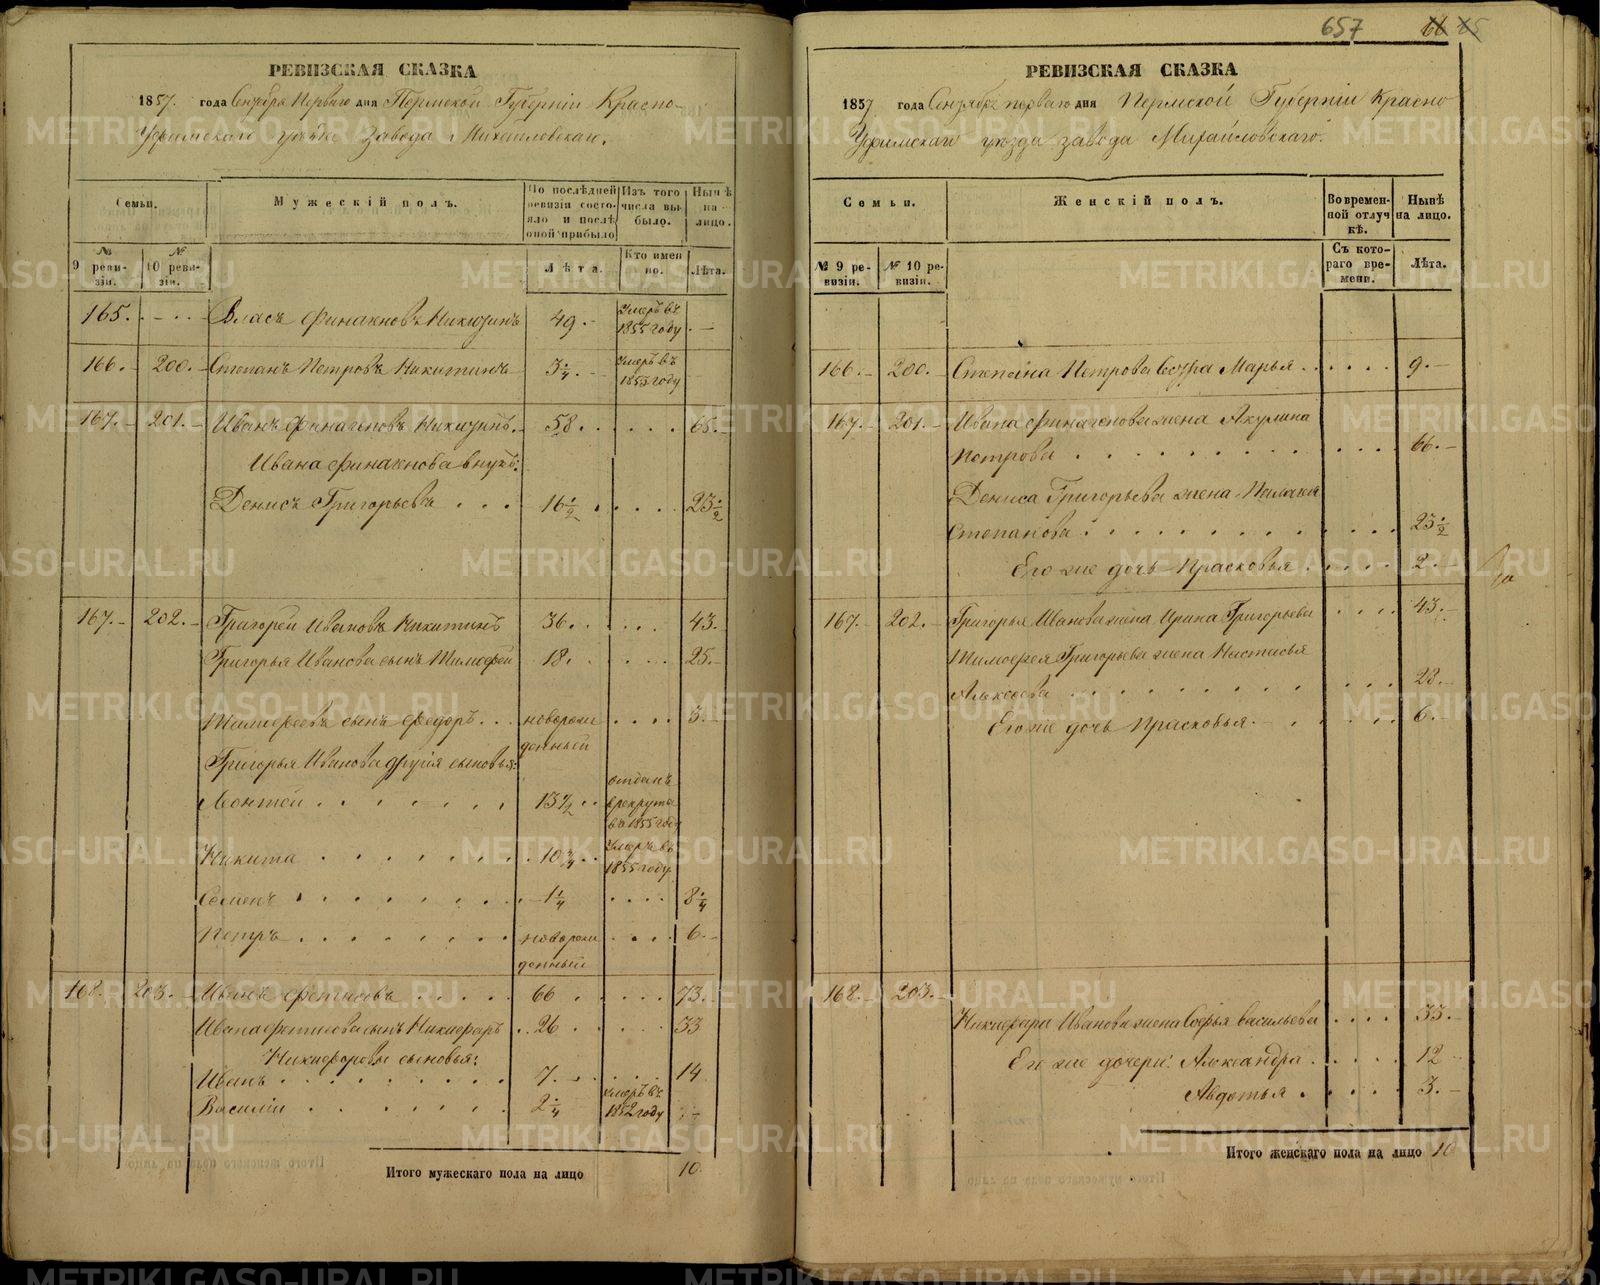 РЕВИЗСКАЯ СКАЗКА
1857. года Сентября Перваго дня Пермской Губерніи Красно-
Уфимскаго уѣзда Завода Михайловскаго.
Семьи.
Мужескій полъ.
По послѣдней ревизіи состояло и послѣ оной прибыло
Изъ того числа выбыло.
Нынѣ на лицо.
№ 9 ревизіи.
№ 10 ревизіи.
Лѣта.
Кто именно.
Лѣта.
165. Власъ Финакновъ Никитинъ 49. Умеръ въ 1855 году
166. 200. Степанъ Петровъ Никитинъ 3 1/4. Умеръ въ 1853 году
167. 201. Иванъ Финагеновъ Никитинъ. 58. 65.
Ивана Финакнова внукъ:
Денисъ Григорьевъ 16 1/2 23 1/2
167. 202. Григорей Ивановъ Никитинъ 36. 43.
Григорья Иванова сынъ Тимофей 18. 25.
Тимофеевъ сынъ Федоръ новорожденный 3.
Григорья Иванова другія сыновья:
Леонтей 13 1/2 отданъ в рекруты въ 1855 году
Никита 10 3/4 Умеръ въ 1855 году
Семенъ 1 1/4 8 1/4
Петръ новорожденный 6.
168. 203. Иванъ Фетисовъ 66 73.
Ивана Фетисова сынъ Никифоръ 26 33
Никифоровы сыновья:
Иванъ 7. 14
Василій 2 1/4 умеръ въ 1852 году
Итого мужескаго пола на лицо 10.
657 66 65
РЕВИЗСКАЯ СКАЗКА
1857 года Сентября перваго дня Пермской Губерніи Красно
Уфимскаго уѣзда завода Михайловскаго.
Семьи.
Женскій полъ.
Во временной отлучкѣ.
Нынѣ на лицо.
№ 9 ревизіи.
№ 10 ревизіи.
Съ котораго времени.
Лѣта.
166. 200. Степана Петрова сестра Марья 9.
167. 201. Ивана Финагенова жена Акулина
Петрова 66.
Дениса Григорьева жена Палагея
Степанова 23 1/2
Его же дочь Прасковья 2.
167. 202. Григорья Иванова жена Ирина Григорьева 43.
Тимофея Григорьева жена Настасья
Алексеева 28.
Его же дочь Прасковья 6.
168. 203.
Никифора Иванова жена Софья Васильева 33.
Его же дочери: Александра 12
Авдотья 3.
Итого женскаго пола на лицо 10
METRIKI.GASO-URAL.RU